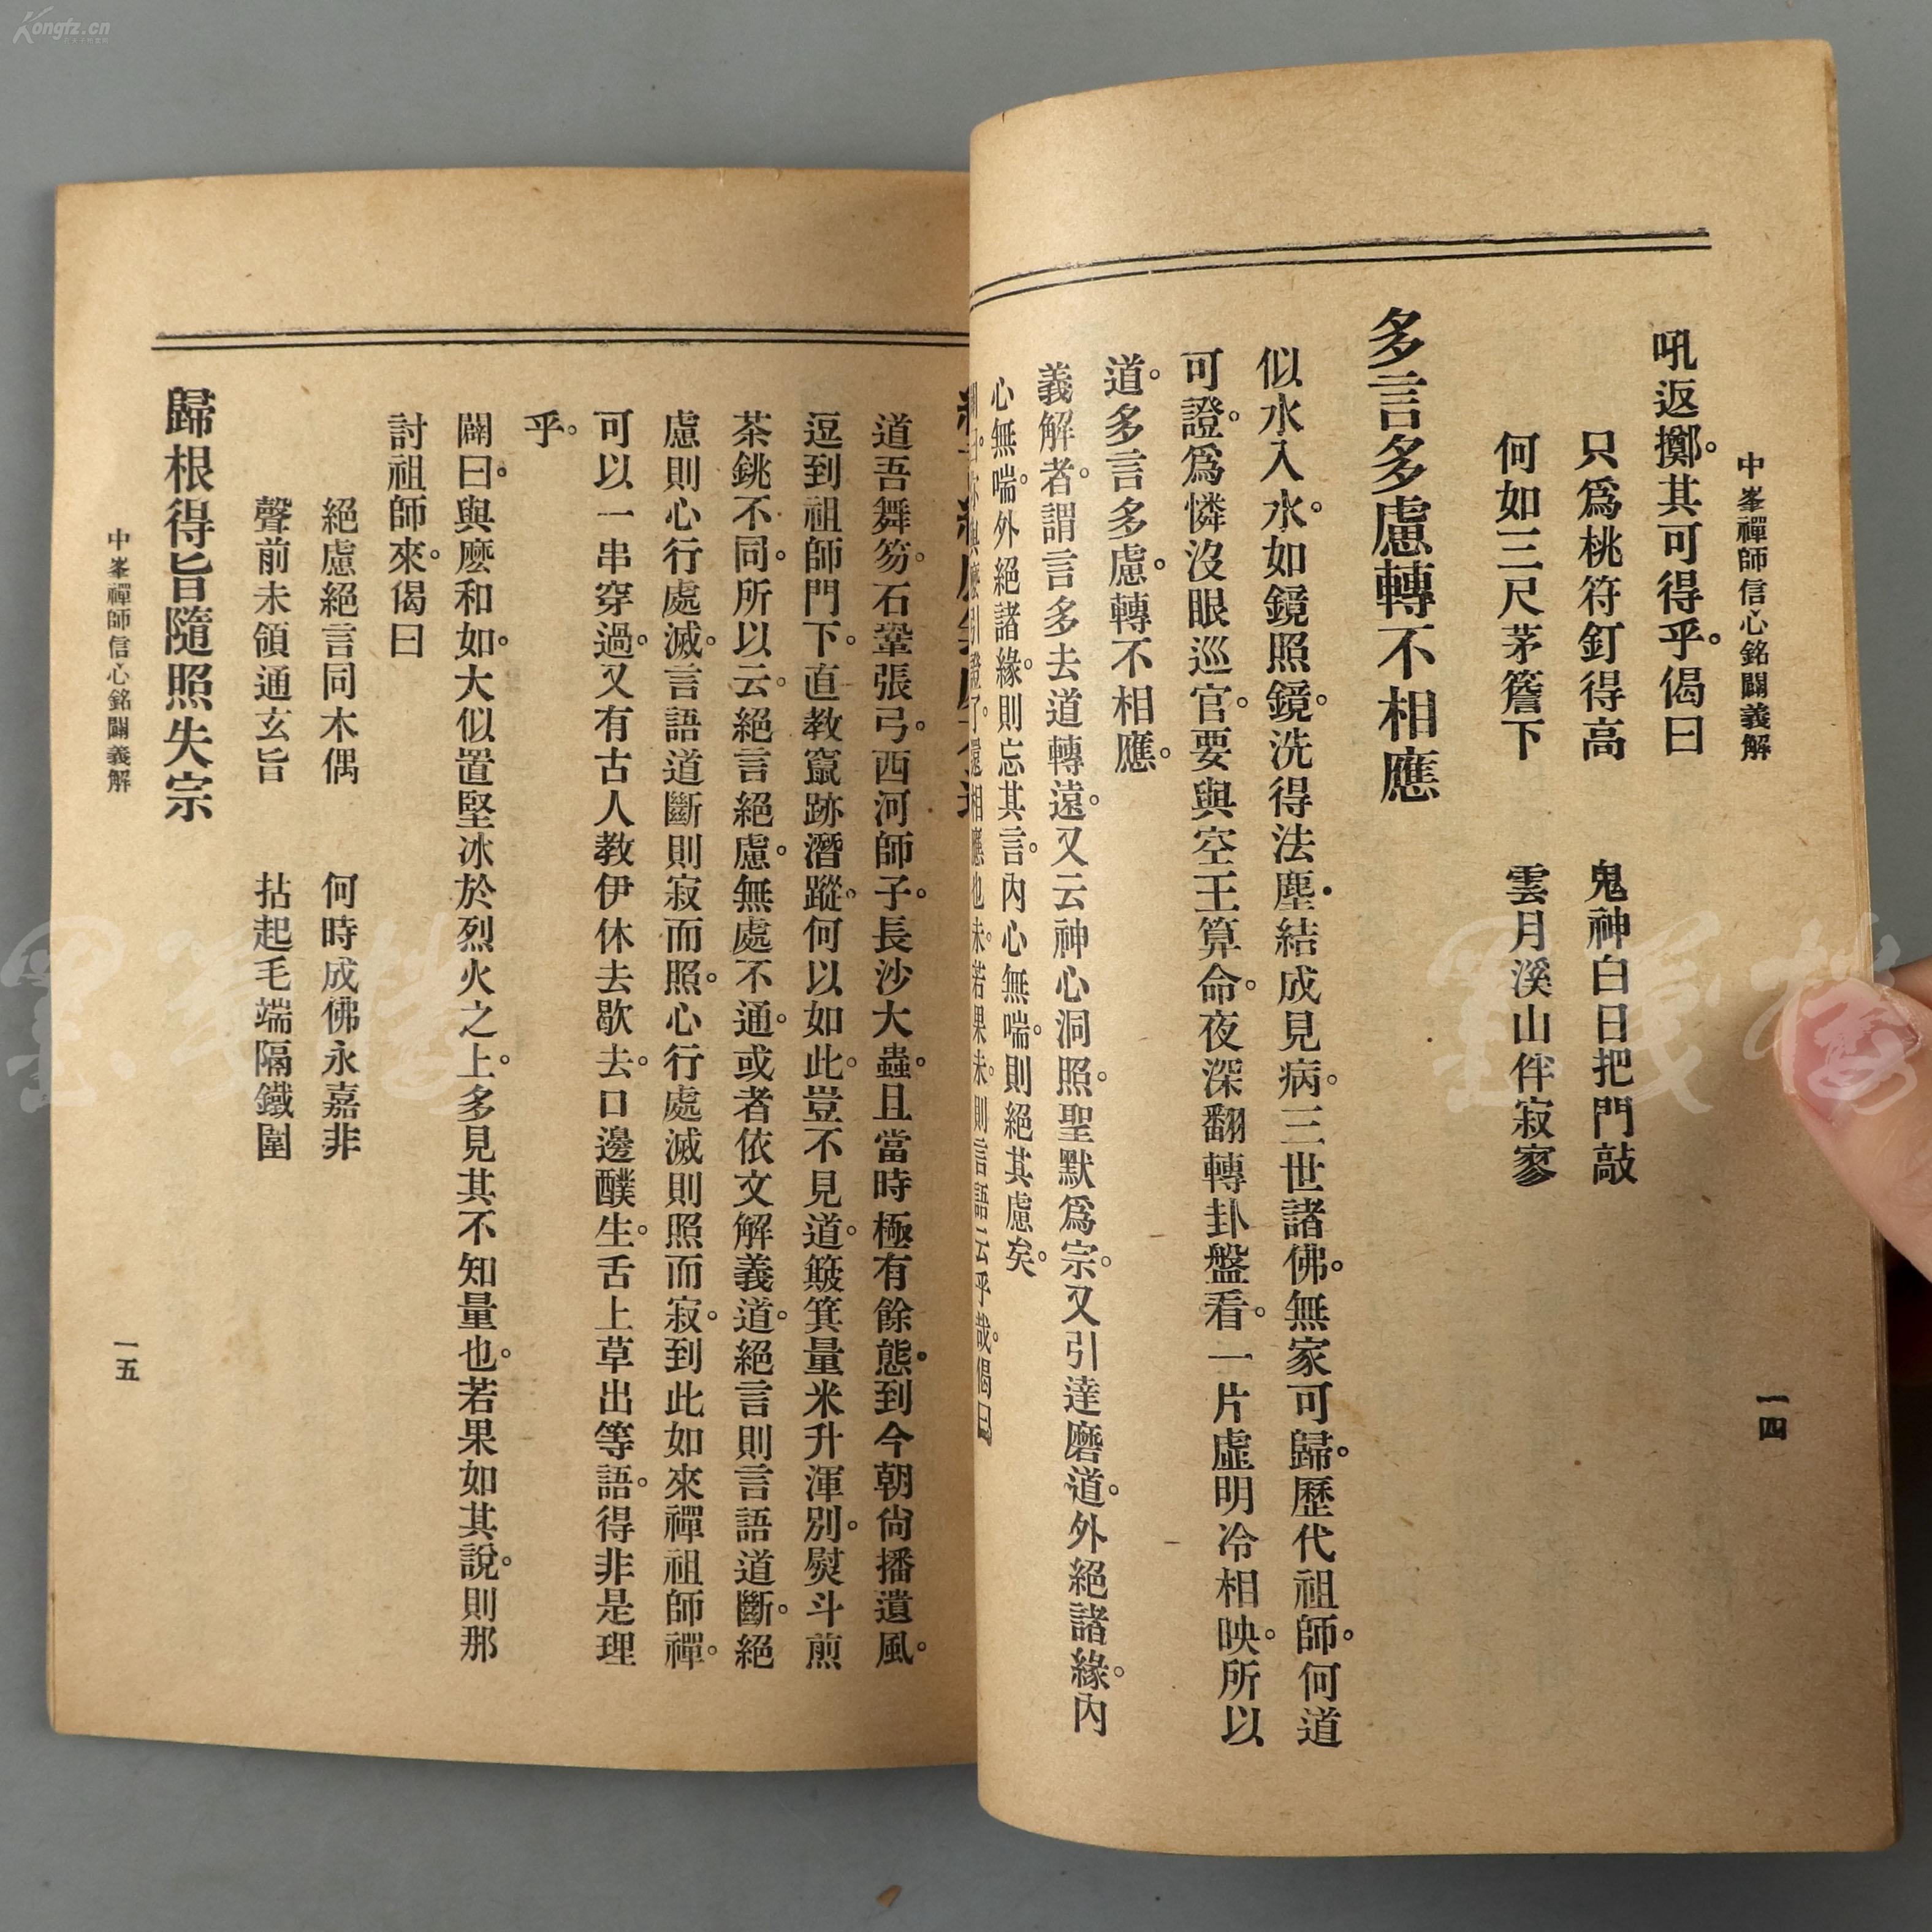 中峯禪師信心銘闢義解
一四
吼返擲。其可得乎。偈曰
只爲桃符釘得高　鬼神白日把門敲
何如三尺茅簷下　雲月溪山伴寂寥
多言多慮轉不相應
似水入水。如鏡照鏡。洗得法塵。結成見病。三世諸佛。無家可歸。歷代祖師。何道
可證。爲憐沒眼巡官。要與空王算命。夜深翻轉卦盤看。一片虛明冷相映。所以
道。多言多慮。轉不相應。
義解者。謂言多去道轉遠。又云神心洞照。聖默爲宗。又引達磨道。外絕諸緣。內
心無喘。外絕諸緣。則忘其言。內心無喘。則絕其慮矣。
闢曰。你與麼引證了。還相應也未。若果未。則言語云乎哉。偈曰
道吾舞笏。石鞏張弓。西河師子。長沙大蟲。且當時極有餘態。到今朝尙播遺風。
逗到祖師門下。直教竄跡潛蹤。何以如此。豈不見道。簸箕量米升渾別。熨斗煎
茶銚不同。所以云。絕言絕慮。無處不通。或者依文解義道。絕言則言語道斷。絕
慮則心行處滅。言語道斷則寂而照。心行處滅則照而寂。到此如來禪祖師禪。
可以一串穿過。又有古人教伊休去歇去。口邊醭生。舌上草出等語。得非是理
乎。
闢曰。與麼和如。大似置堅冰於烈火之上。多見其不知量也。若果如其說。則那
討祖師來。偈曰
絕慮絕言同木偶　何時成佛永嘉非
聲前未領通玄旨　拈起毛端隔鐵圍
歸根得旨隨照失宗
中峯禪師信心銘闢義解
一五
Kongfz.cn